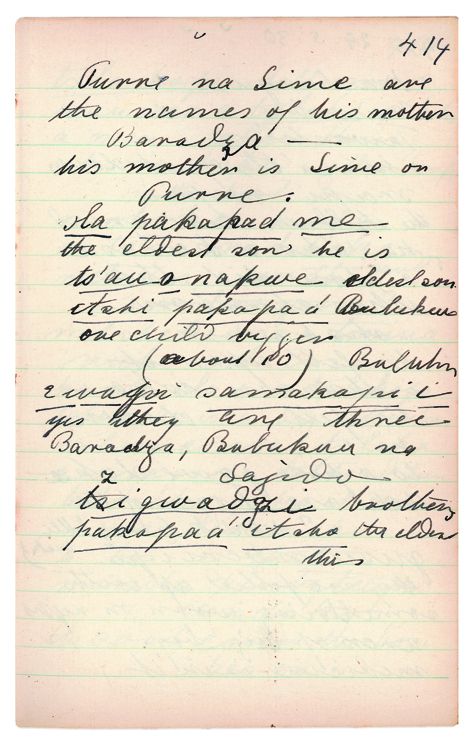 414
Purre na Sime are
the names of his mother
Baradza —
his mother is Sime or
Purre.
Ha pakapad me
the eldest son he is
to'au onakwe eldest son
etshi pakapaá Bubukuu
one child bigger
(about 10) Bubuku
ewagoi samakapi i
yes they are three
Baradza, Bubukuu na
Sajido
z
tsigwadzi brothers
pakapaá etsha the elder
this